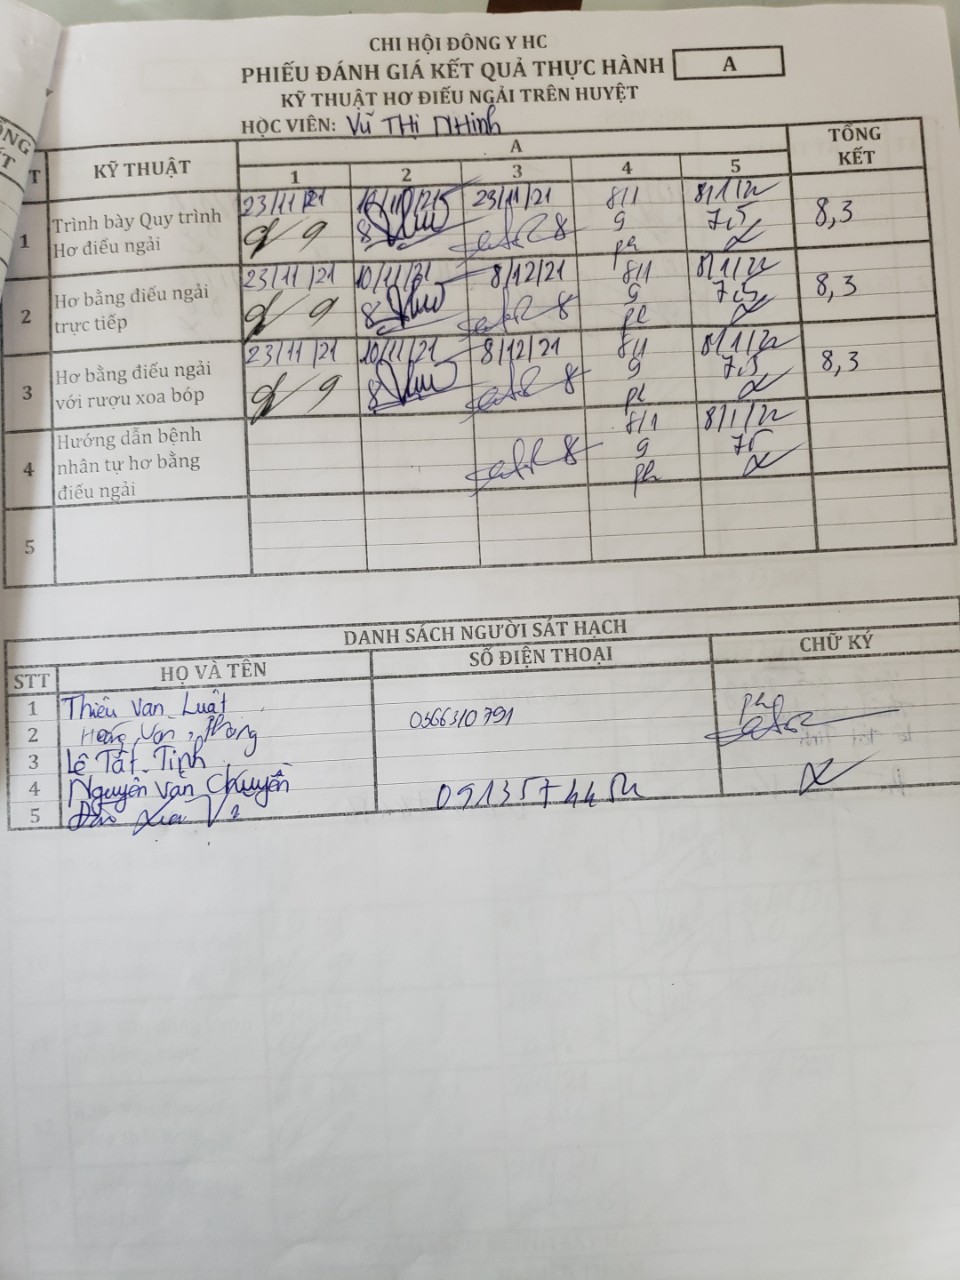 CHI HỘI ĐÔNG Y HC
PHIẾU ĐÁNH GIÁ KẾT QUẢ THỰC HÀNH A
KỸ THUẬT HƠ ĐIẾU NGẢI TRÊN HUYỆT
HỌC VIÊN: Vũ Thị Nhinh
T KỸ THUẬT A TỔNG KẾT
1 2 3 4 5
1 Trình bày Quy trình 23/11/21 23/11/21 8/1 8/1/22 8,3
Hơ điếu ngải 9 8 8 9 7,5
2 Hơ bằng điếu ngải 23/11/21 10/11/21 8/12/21 8/1 8/1/22 8,3
trực tiếp 9 8 8 9 7,5
3 Hơ bằng điếu ngải 23/11/21 10/11/21 8/12/21 8/1 8/1/22 8,3
với rượu xoa bóp 9 8 8 9 7,5
4 Hướng dẫn bệnh 8/1 8/1/22
nhân tự hơ bằng 8 9 75
điếu ngải
5
DANH SÁCH NGƯỜI SÁT HẠCH
STT HỌ VÀ TÊN SỐ ĐIỆN THOẠI CHỮ KÝ
1 Thiều Văn Luật
2 Văn 0366310791
3 Lê Tất Tinh
4 Nguyễn Văn Chuyền
5